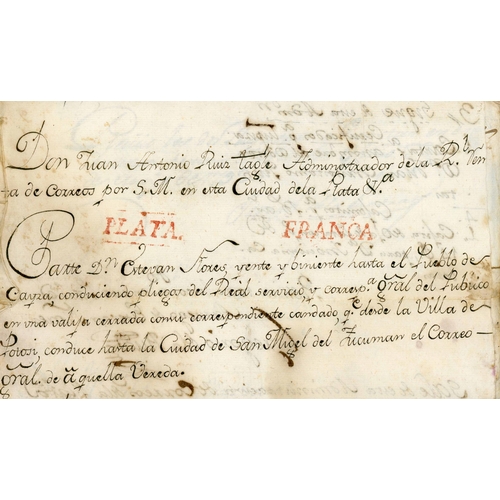 Don Juan Antonio Ruiz tagle Administrador de la R.l Ren
ta de Correos por S. M. en esta Ciudad de la Plata &.a
PLATA. FRANCA
Parte D.n Estevan Flores, yente y viniente hasta el Pueblo de
Cayza conduciendo pliegos del Real servicio, y corresp.a gral del Publico
en una valija cerrada con su correspondiente candado q.e desde la Villa de
Potosi, conduce hasta la Ciudad de San Migel del Tucuman el Correo
Gral. de aquella Vereda.